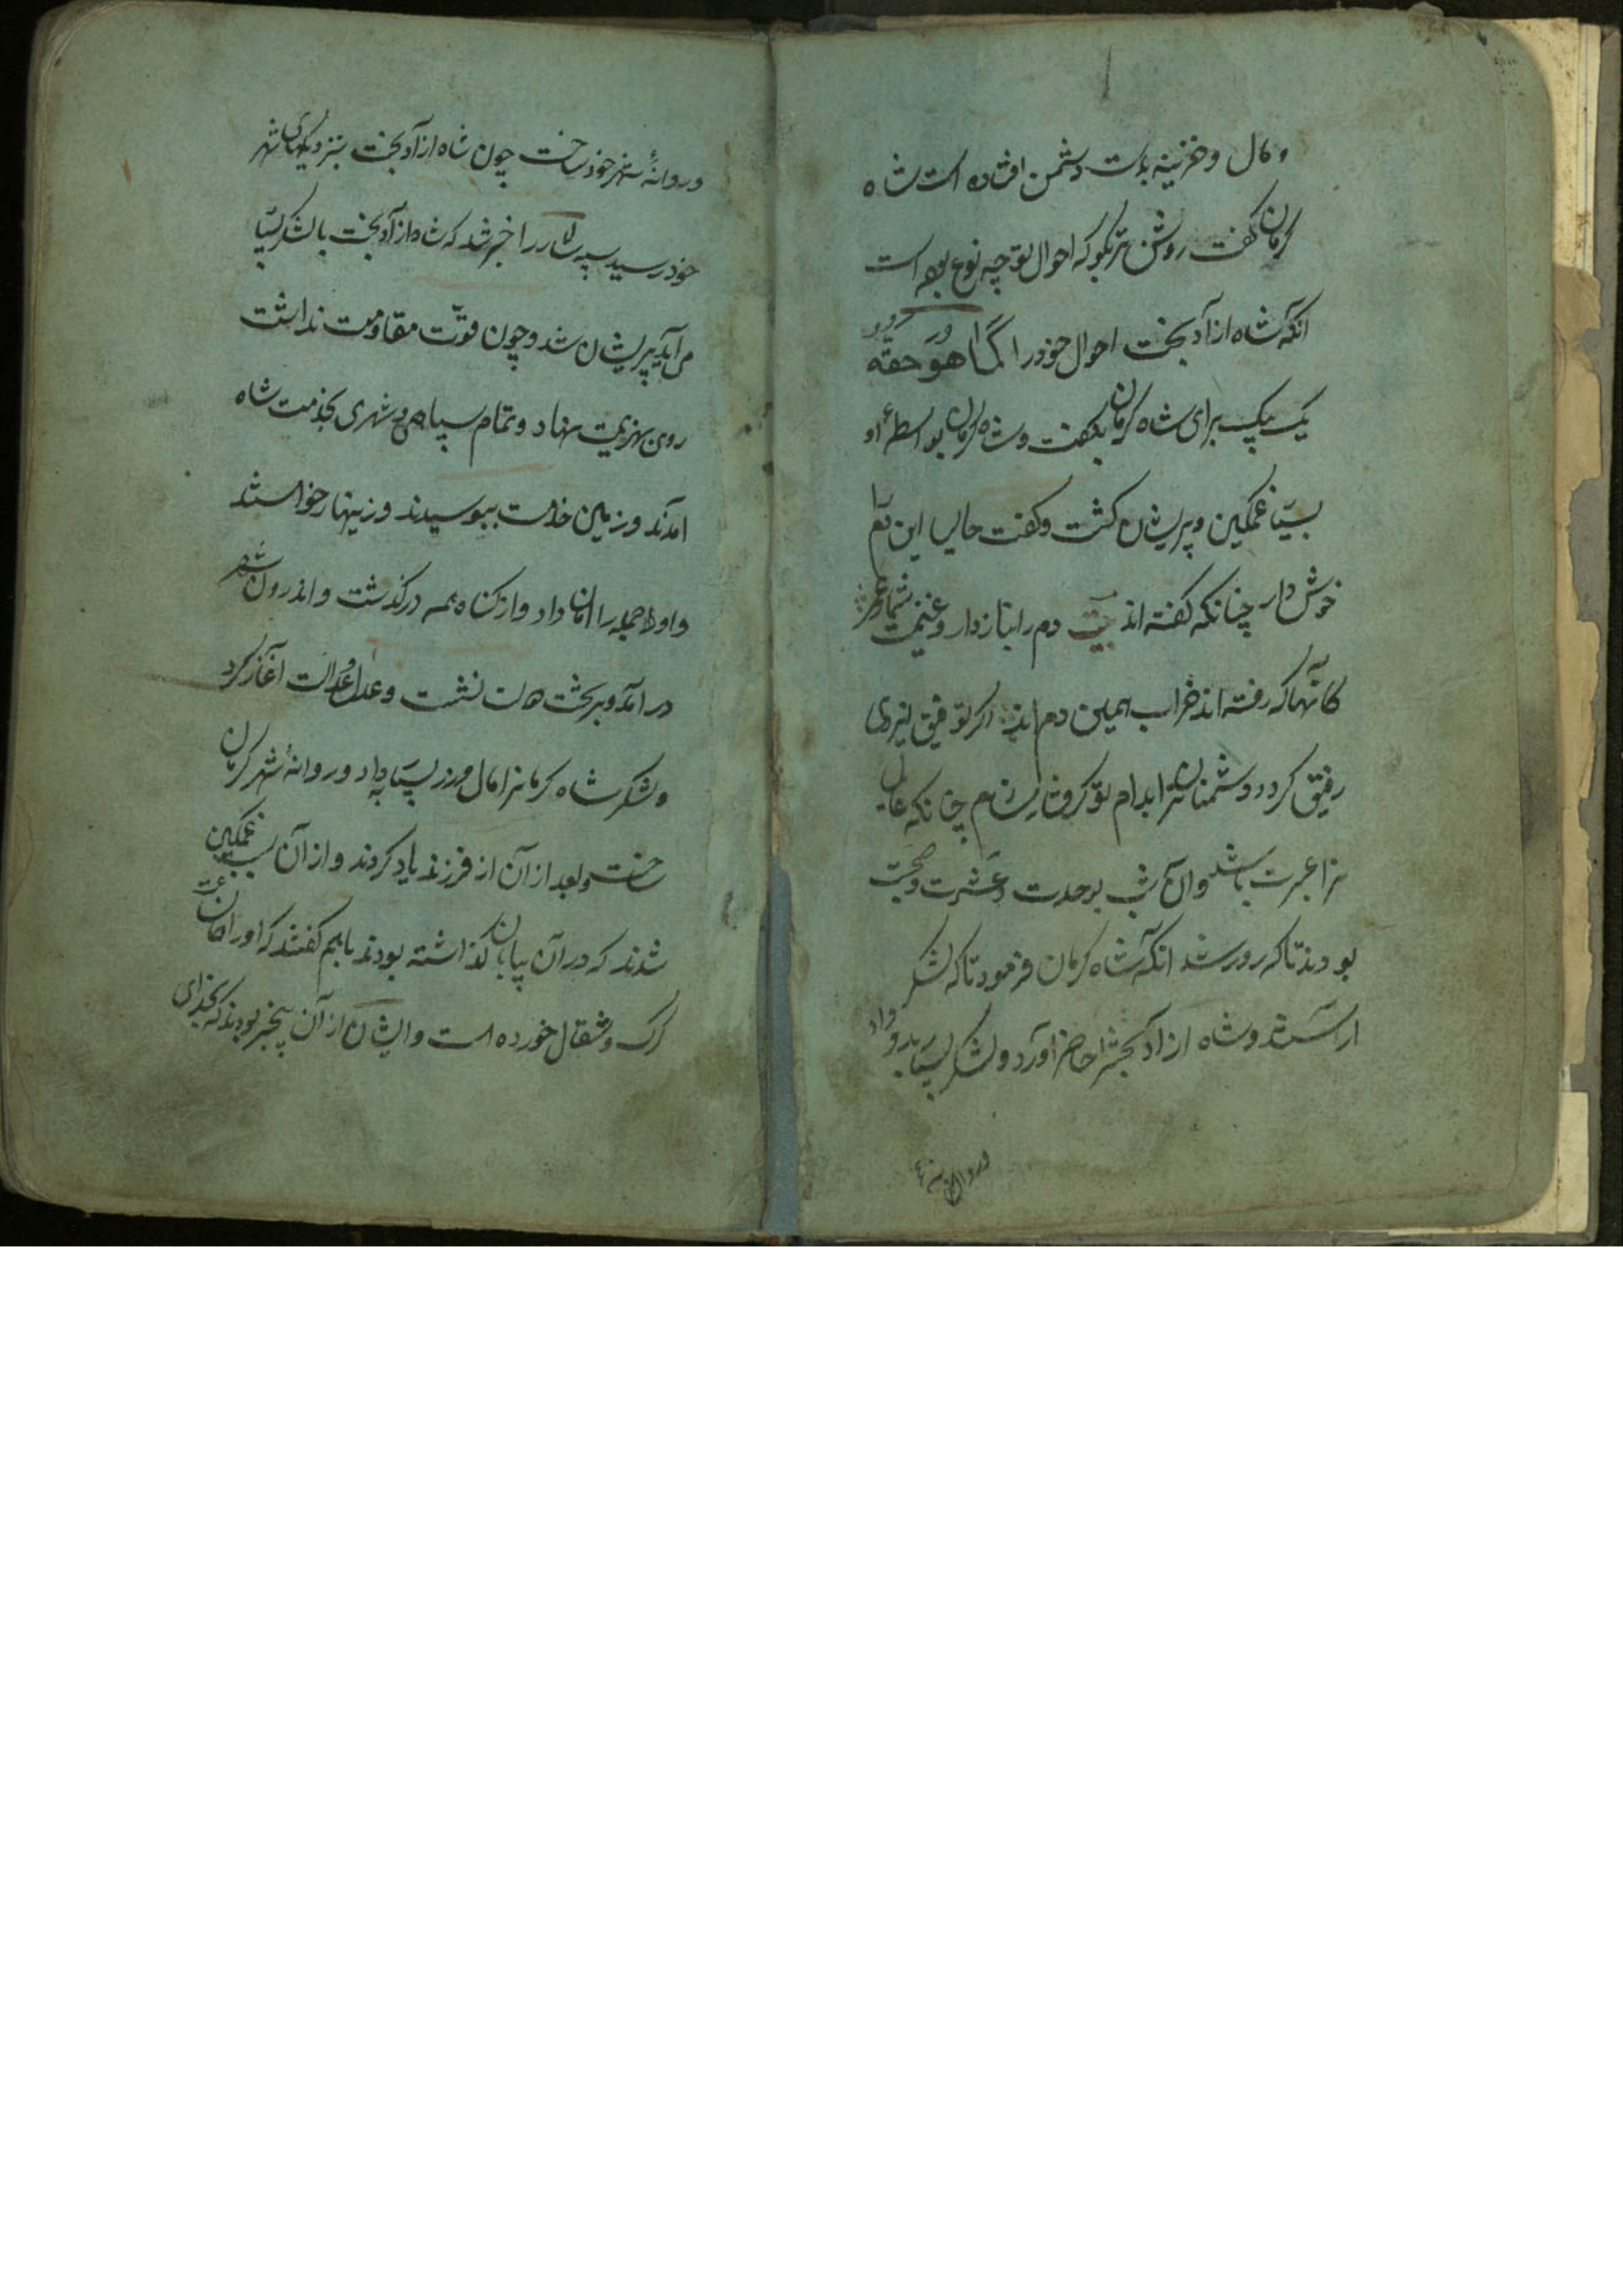 و مال و خزینه بدست دشمن افتاده است شاه
کرمان کفت روشن تر بکو که احوال تو چه نوع بوده است
انکه شاه ازادبخت احوال خود را کَمَا هُوَ حَقُّهُ
یک بیک برای شاه کرمان بکفت و شاه کرمان بواسطهٔ او
بسیار غمکین و پریشان کشت و کفت حالیا این دم
خوش دار چنانکه کفته اند بیت دم را بناز دار و غنیمت شمار عمر
کانها که رفته اند خراب همین دم اند اکر توفیق ایزدی
رفیق کردد دشمنان ترا بدام تو کرفتار سازم چنانکه عالمی
را عبرت باشد و آن شب بوحدت و عشرت و صحبت
بودند تا که روز شد انکه شاه کرمان فرمود تا که لشکر
اراستند و شاه ازادبخت را حاضر اورد و لشکر بسیار بدو داد
و روانهٔ
و روانهٔ شهر خود ساخت چون شاه ازادبخت بنزدیکهای شهر
خود رسید سپه سالار را خبر شد که شاه ازادبخت با لشکر بسیار
می اید پریشان شد و چون قوّت مقاومت نداشت
روی بهزیمت نهاد و تمام سپاهی و شهری بخدمت شاه
امدند و زمین خدمت ببوسیدند و زینهار خواستند
و او جمله را امان داد و از کناه همه درکذشت و اندرون شهر
در امد و بر تخت نشست و عدل و عدالت آغاز کرد
و لشکر شاه کرمانرا مال و زر بسیار بداد و روانهٔ شهر کرمان
ساخت و بعد از آن از فرزند یاد کردند و از آن سبب غمکین
شدند که در آن بیابان کذاشته بودند با هم کفتند که او را همان ساعت
کرک و شقال خورده است و ایشان از آن بیخبر بودند که خدای